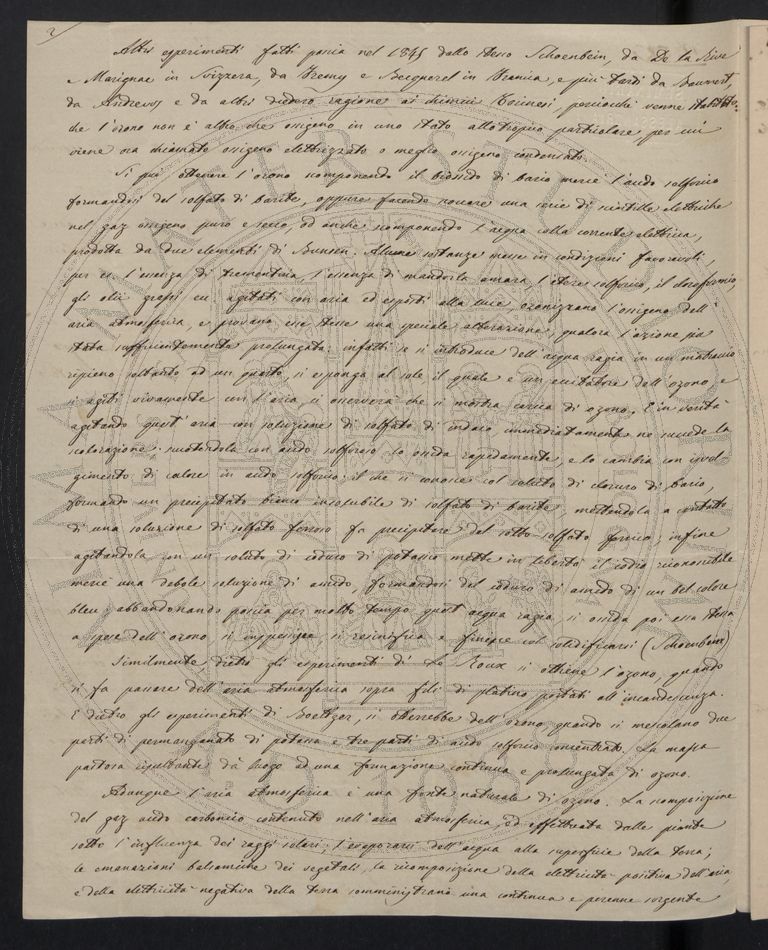 2
Altri esperimenti fatti poscia nel 1845 dallo stesso Schoenbein, da De la Rive
e Marignac in Svizzera, da Fremy e Becquerel in Francia, e più tardi da
da Andrews e da altri diedero ragione ai chimici perciocchè venne stabilito:
che l'ozono non è altro che ossigeno in uno stato allotropico particolare per cui
viene ora chiamato ossigeno elettrizzato o meglio ossigeno condensato.
Si può ottenere l'ozono scomponendo il biossido di bario mercè l'acido solforico
formandosi del solfato di barite, oppure facendo passare una serie di scintille elettriche
nel gaz ossigeno puro e secco, od anche scomponendo l'acqua colla corrente elettrica,
prodotta da due elementi di Bunsen. Alcune sostanze messe in condizioni favorevoli,
per es. l'essenza di trementina, l'essenza di mandorla amara, l'etere solforico, il cloroformio,
gli olii grassi ecc. agitati con aria ed esposti alla luce, ozonizzano l'ossigeno dell'
aria atmosferica, e provano esse stesse una speciale alterazione, qualora l'azione sia
stata sufficientemente prolungata: infatti se si introduce dell'acqua ragia in un matraccio
ripieno soltanto ad un quarto, si esponga al sole il quale è un eccitatore dell'ozono e
si agiti vivamente con l'aria si osserverà che si mostra carica di ozono. E in verità
agitando quest'aria con soluzione di solfato di indaco, immediatamente ne succede la
scolorazione; scuotendola con acido solforoso lo ossida rapidamente, e lo cambia con isvol-
gimento di calore in acido solforico: il che si conosce col soluto di cloruro di bario,
formando un precipitato bianco insolubile di solfato di barite: mettendola a contatto
di una soluzione di solfato ferroso fa precipitare del sotto solfato ferrico; infine
agitandola con un soluto di ioduro di potassio mette in libertà il iodio riconoscibile
mercè una debole soluzione di amido, formandosi del ioduro di amido di un bel colore
bleu; abbandonando poscia per molto tempo quest'acqua ragia, si ossida poi essa stessa
a spese dell'ozono si inspessisce si resinifica e finisce col solidificarsi (Schoenbein)
Similmente dietro gli esperimenti di Le Roux si ottiene l'ozono, quando
si fa passare dell'aria atmosferica sopra fili di platino portati all'incandescenza.
E dietro gli esperimenti di Boettger, si otterrebbe dell'ozono quando si mescolano due
parti di permanganato di potassa e tre parti di acido solforico concentrato. La massa
pastosa risultante dà luogo ad una formazione continua e prolungata di ozono.
Adunque l'aria atmosferica è una fonte naturale di ozono. La scomposizione
del gaz acido carbonico contenuto nell'aria atmosferica, ed effettuata dalle piante
sotto l'influenza dei raggi solari; l'evaporarsi dell'acqua alla superficie della terra;
le emanazioni balsamiche dei vegetali, la ricomposizione della elettricità positiva dell'aria,
e della elettricità negativa della terra somministrano una continua e perenne sorgente